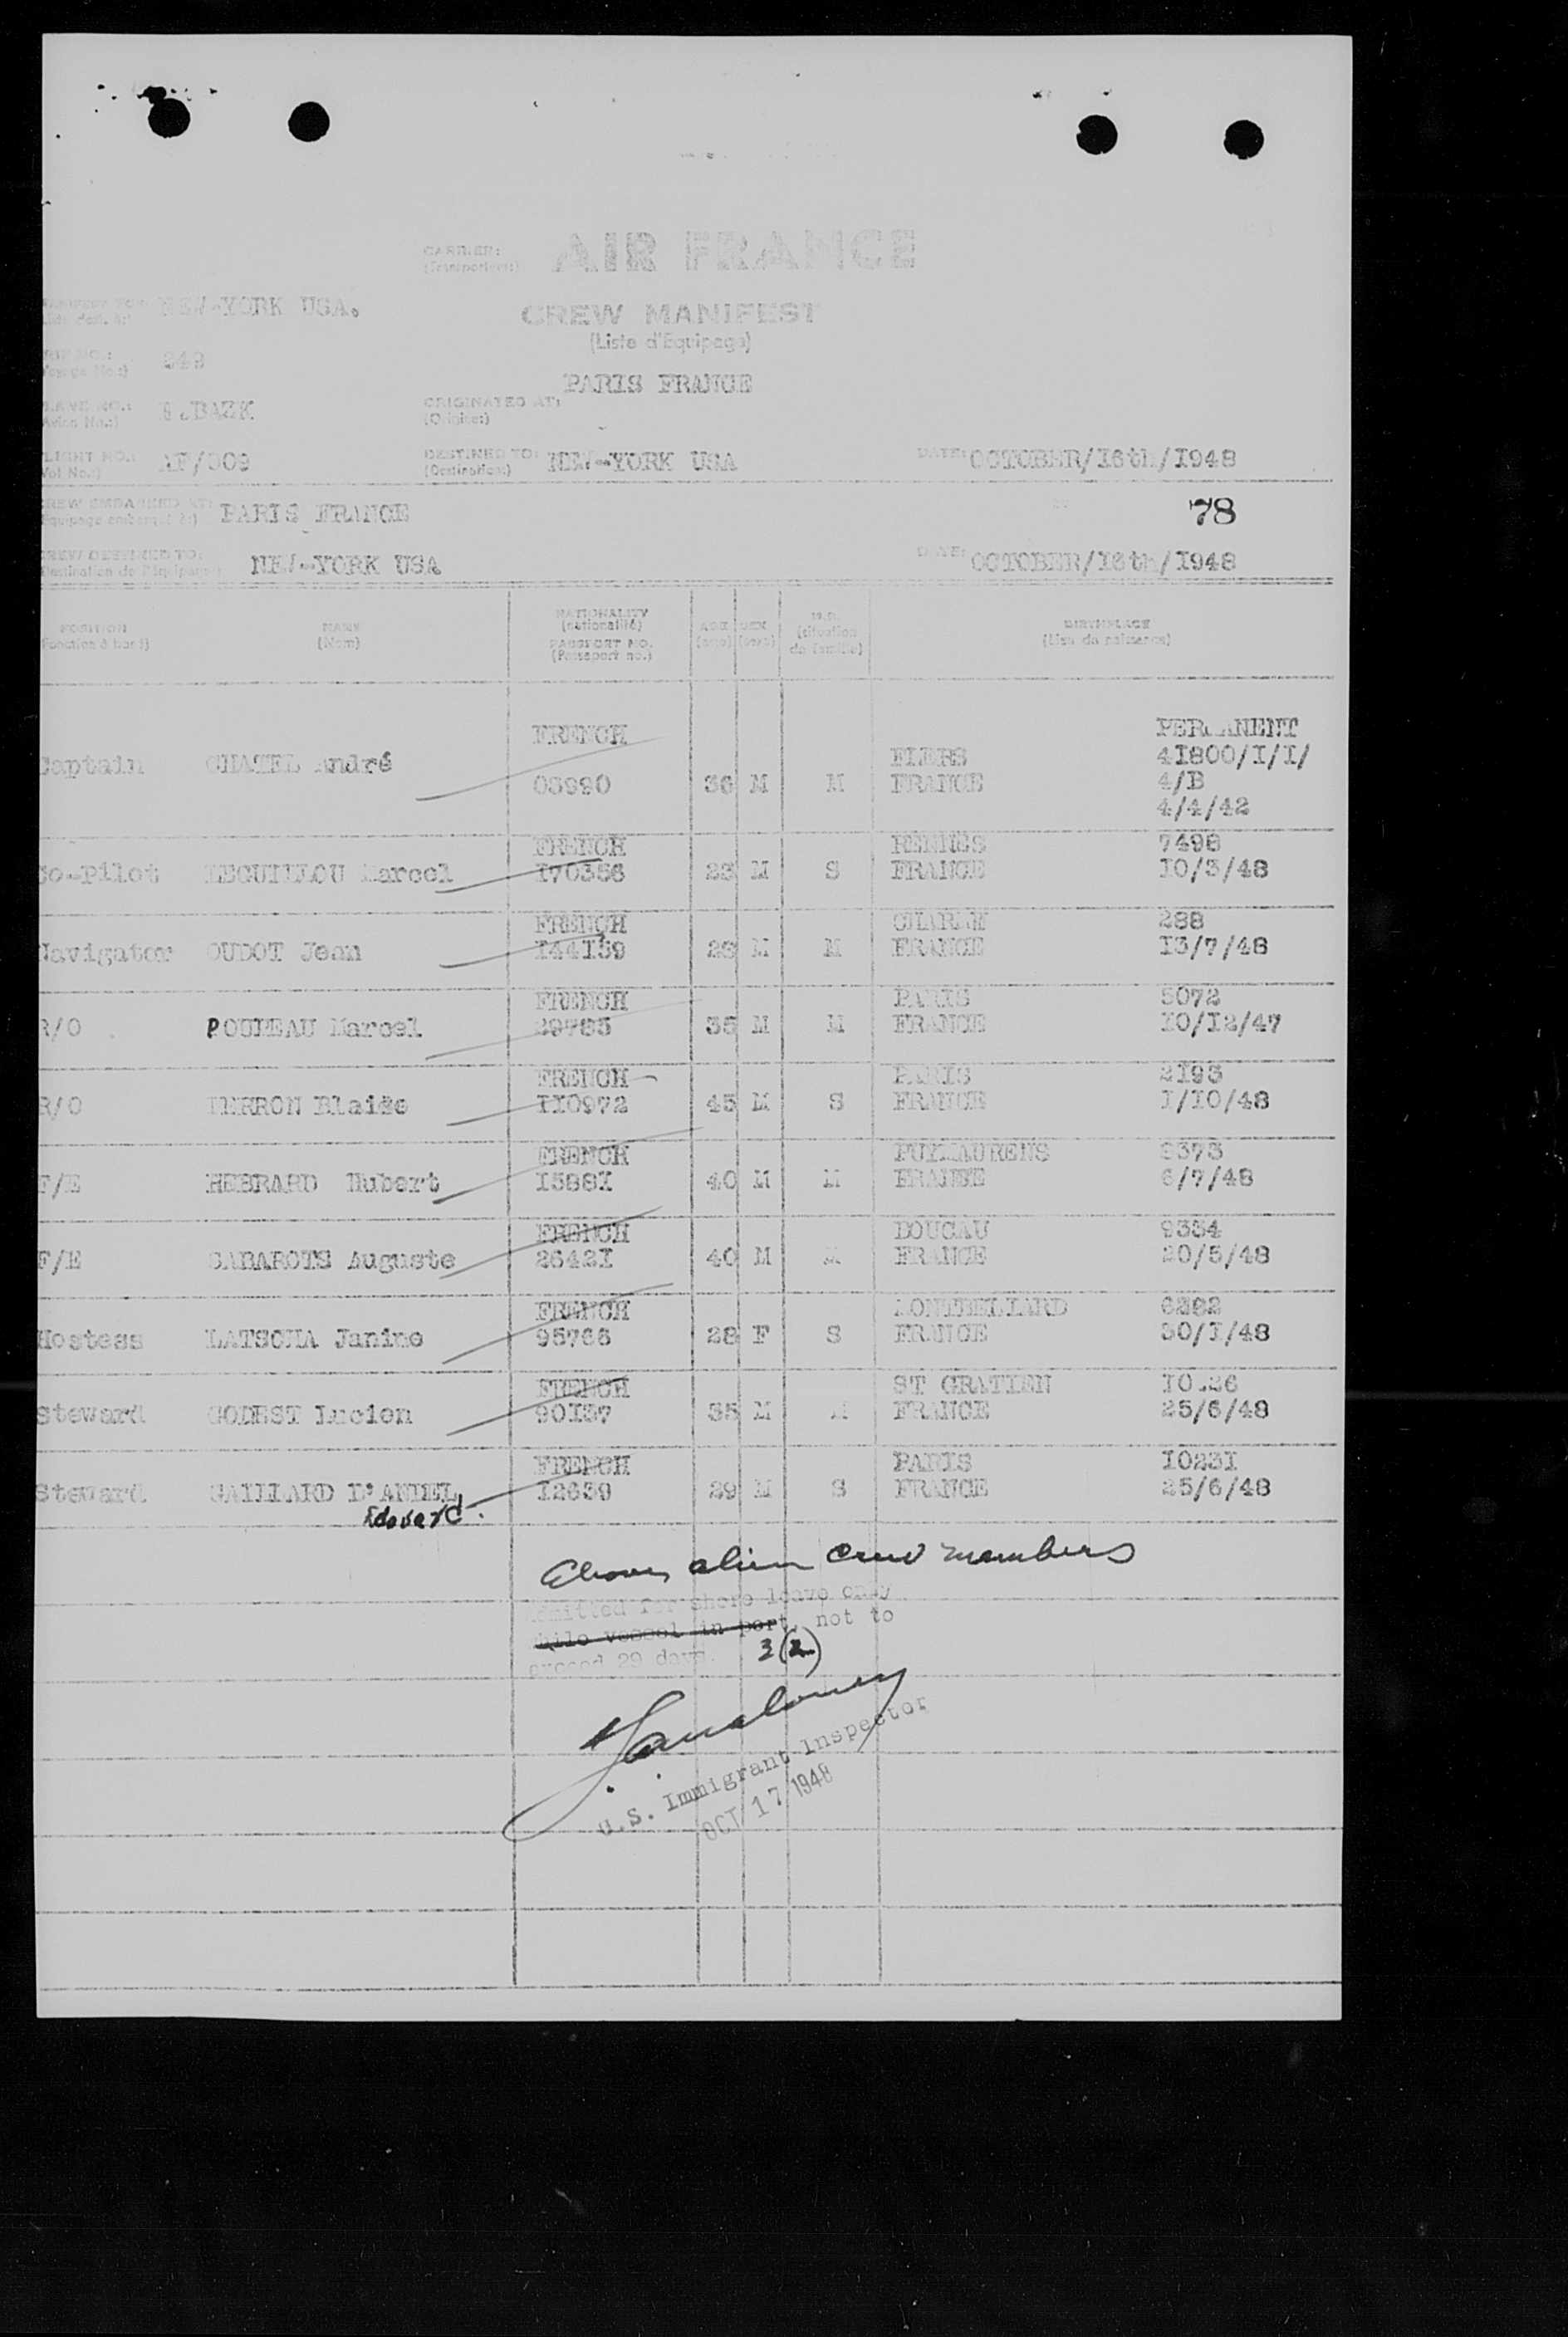 CARRIER: AIR FRANCE
(Transporteur:)
NEW-YORK USA.
CREW MANIFEST
(Liste d'Equipage)
PARIS FRANCE
ORIGINATED AT:
(Origine:)
F.BAZK
FLIGHT NO.: AF/009
(Vol No.:)
DESTINED TO: NEW-YORK USA
(Destination:)
DATE: OCTOBER/16th/1948
CREW EMBARKED AT: PARIS FRANCE
78
CREW DESTINED TO: NEW-YORK USA
DATE: OCTOBER/16th/1948
POSITION NAME NATIONALITY AGE SEX BIRTHPLACE
(Fonction à bord) (Nom) (nationalité) (situation de famille) (Lieu de naissance)
PASSPORT NO.
(Passeport no.)
Captain CHATEL André FRENCH 03990 36 M M FLERS FRANCE PERMANENT 41800/I/I/ 4/B 4/4/42
Co-Pilot LEGUILLOU Marcel FRENCH 170356 28 M S RENNES FRANCE 7498 10/3/48
Navigator OUDOT Jean FRENCH 144159 28 M M FRANCE 288 13/7/48
R/O POUPEAU Marcel FRENCH 29783 35 M M PARIS FRANCE 5072 10/12/47
R/O Blaise FRENCH 110972 45 M S PARIS FRANCE 2193 1/10/48
F/E HEBRARD Hubert FRENCH 15881 40 M M PUYLAURENS FRANCE 9373 6/7/48
F/E CABAROTS Auguste FRENCH 26421 40 M M BOUCAU FRANCE 9334 20/5/48
Hostess LATSCHA Janine FRENCH 95766 28 F S MONTBELIARD FRANCE 6282 30/1/48
Steward GODEST Lucien FRENCH 90137 35 M M ST GRATIEN FRANCE 25/6/48
Steward GAILLARD D'ANIEL FRENCH 12639 29 M S PARIS FRANCE 10231 25/6/48
Edouard
Above alien crew members
admitted for shore leave only
while vessel in port, not to
exceed 29 days. 3(2)
U.S. Immigrant Inspector
OCT 17 1948